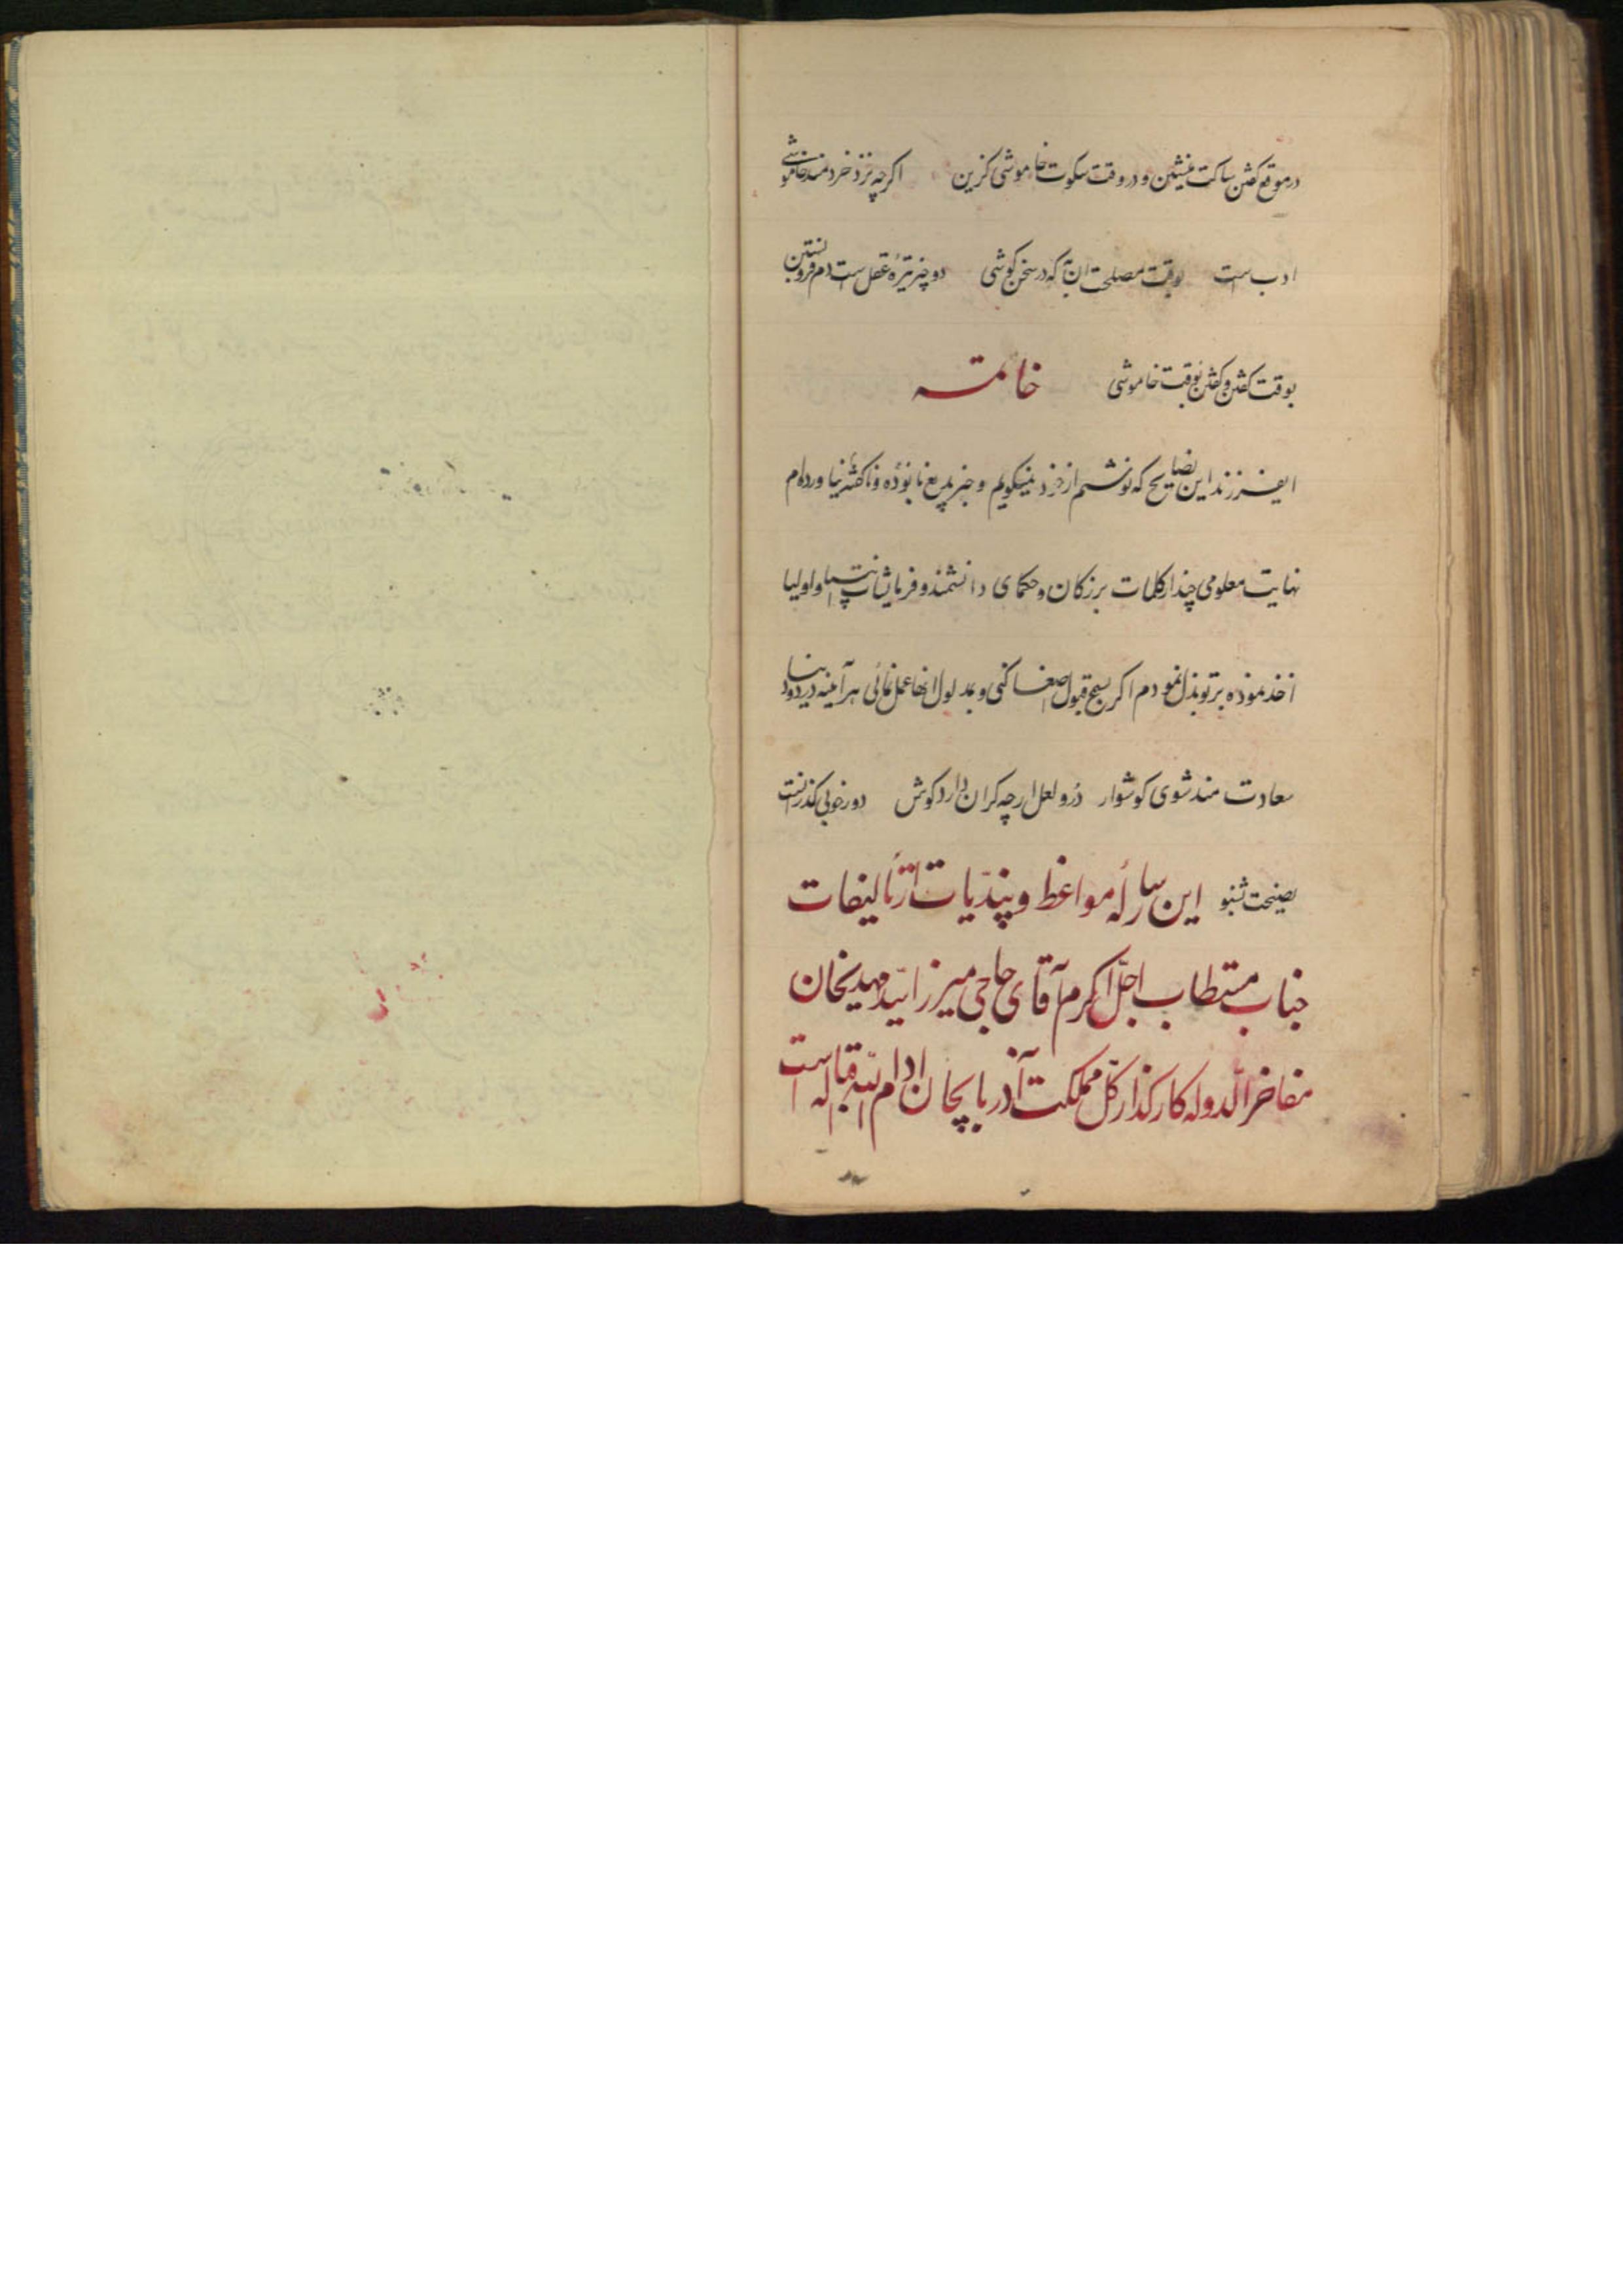 درموقع کفتن ساکت منیشین و در وقت سکوت خاموشی کزین اکرچه نزد خردمند خاموشی
ادب است بوقت مصلحت آن به که در سخن کوشی دو چیز تیرهٔ عقل است دم فرو بستن
بوقت کفتن و کفتن بوقت خاموشی خاتمه
ایفرزند این نصایح که نوشتم از خود نمیکویم و چیز بدیع نابوده و ناکفته نیاورده‌ام
نهایت معلومی چند از کلمات بزرکان و حکمای دانشمند و فرمایشات انبیا و اولیا
اخذ نموده بر تو بذل نمودم اکر بسمع قبول اصغا کنی و بمدلول انها عمل نمائی هرآینه در دنیا
سعادت مند شوی کوشوار در و لعل ارچه کران دارد کوش دور خوبی کذرانست
نصیحت بشنو این رساله مواعظ و پندیات از تألیفات
جناب مستطاب اجل اکرم آقای حاجی میرزا سید مهدیخان
مفاخر الدوله کارکذار کل مملکت آذربایجان ادام الله اقباله است